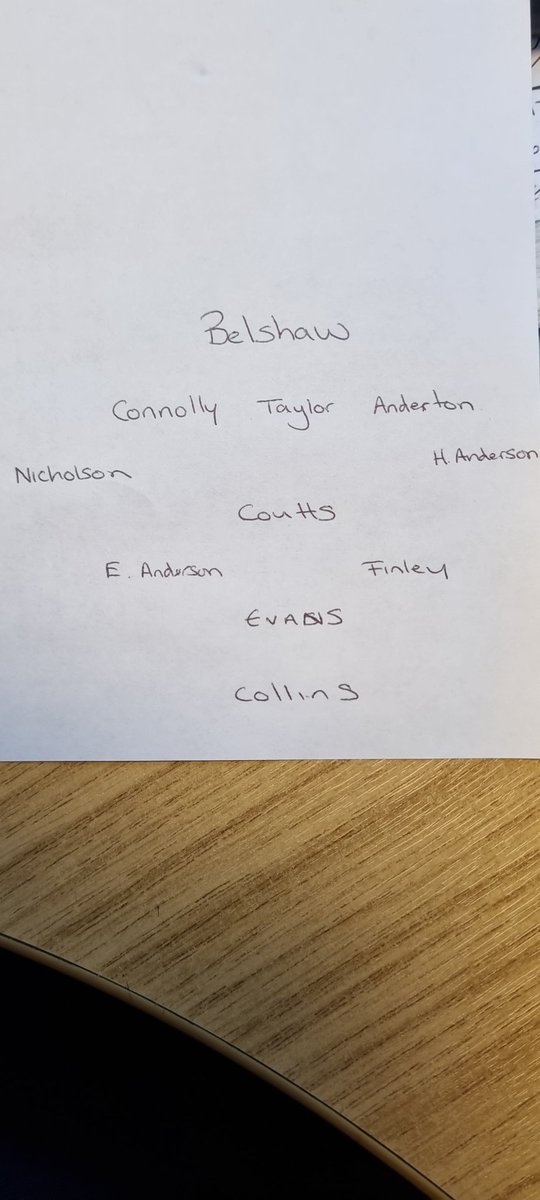 Belshaw
Connolly Taylor Anderton
H. Anderson
Nicholson
Coutts
E. Anderson Finley
EVANS
Collins